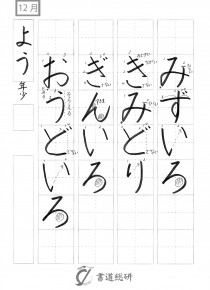 12月
みずいろ
きみどり
ぎんいろ
おうどいろ
よう年少
書道総研